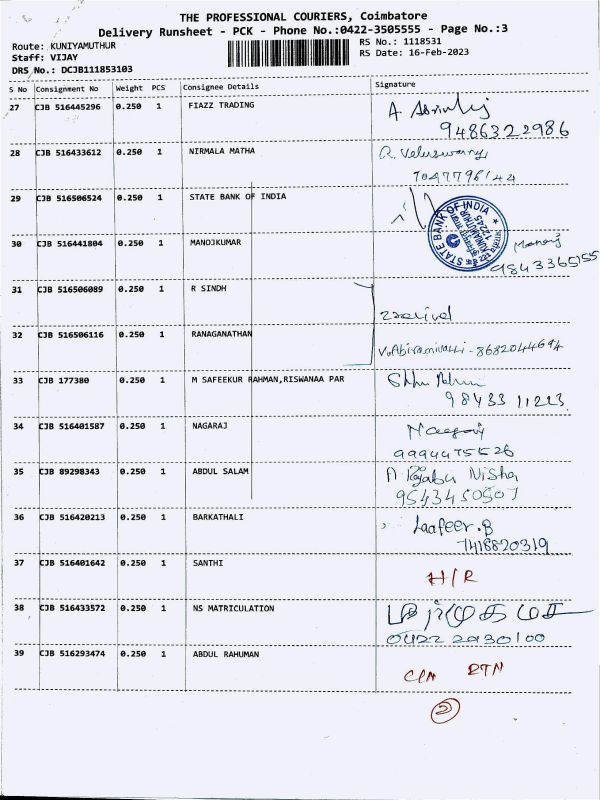 THE PROFESSIONAL COURIERS, Coimbatore
Delivery Runsheet - PCK - Phone No.:0422-3505555 - Page No.:3
Route: KUNIYAMUTHUR RS No.: 1118531
Staff: VIJAY RS Date: 16-Feb-2023
DRS No.: DCJB111853103
S No Consignment No Weight PCS Consignee Details Signature
27 CJB 516445296 0.250 1 FIAZZ TRADING
9486322986
28 CJB 516433612 0.250 1 NIRMALA MATHA R. Veluswamy
7047796144
29 CJB 516506524 0.250 1 STATE BANK OF INDIA
STATE BANK OF INDIA
30 CJB 516441804 0.250 1 MANOJKUMAR Manoj
9843365155
31 CJB 516506089 0.250 1 R SINDH
32 CJB 516506116 0.250 1 RANAGANATHAN
V.Abiramivalli - 8682044694
33 CJB 177380 0.250 1 M SAFEEKUR RAHMAN,RISWANAA PAR
98433 11213
34 CJB 516401587 0.250 1 NAGARAJ Nagaraj
35 CJB 89298343 0.250 1 ABDUL SALAM A Rajabu Nisha
9543450507
36 CJB 516420213 0.250 1 BARKATHALI Laafeer.B
7418820319
37 CJB 516401642 0.250 1 SANTHI
H/R
38 CJB 516433572 0.250 1 NS MATRICULATION
0422 2930100
39 CJB 516293474 0.250 1 ABDUL RAHUMAN
RTN
2